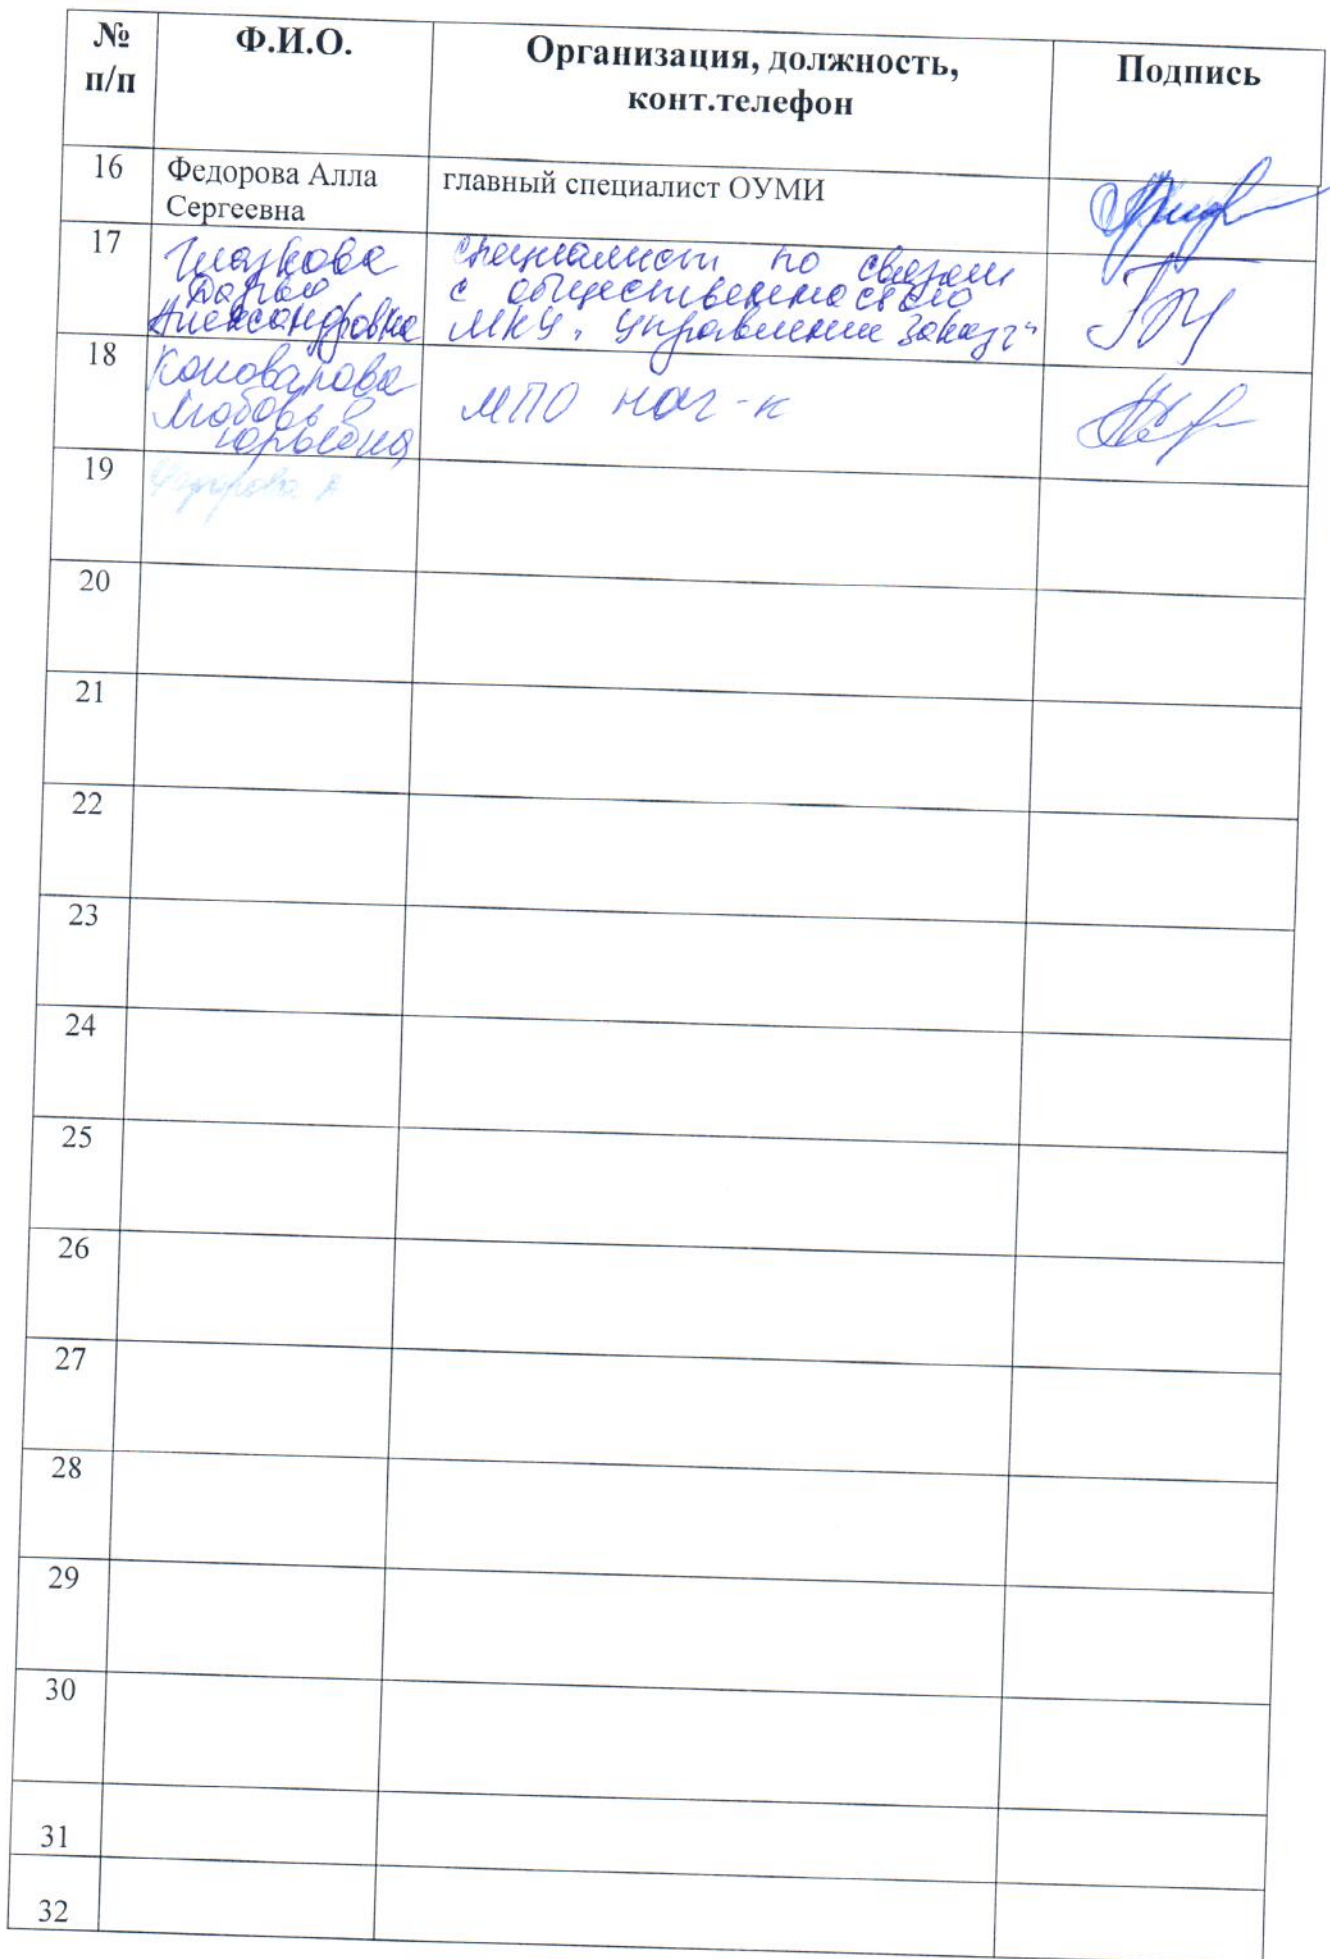 № п/п
Ф.И.О.
Организация, должность, конт.телефон
Подпись
16
Федорова Алла
Сергеевна
главный специалист ОУМИ
17
Глазкова
Дарья
Александровна
специалист по связям
с общественностью
МКУ "Управление заказч"
18
Коновалова
Любовь
Юрьевна
МПО нач-к
19
Федорова А
20
21
22
23
24
25
26
27
28
29
30
31
32